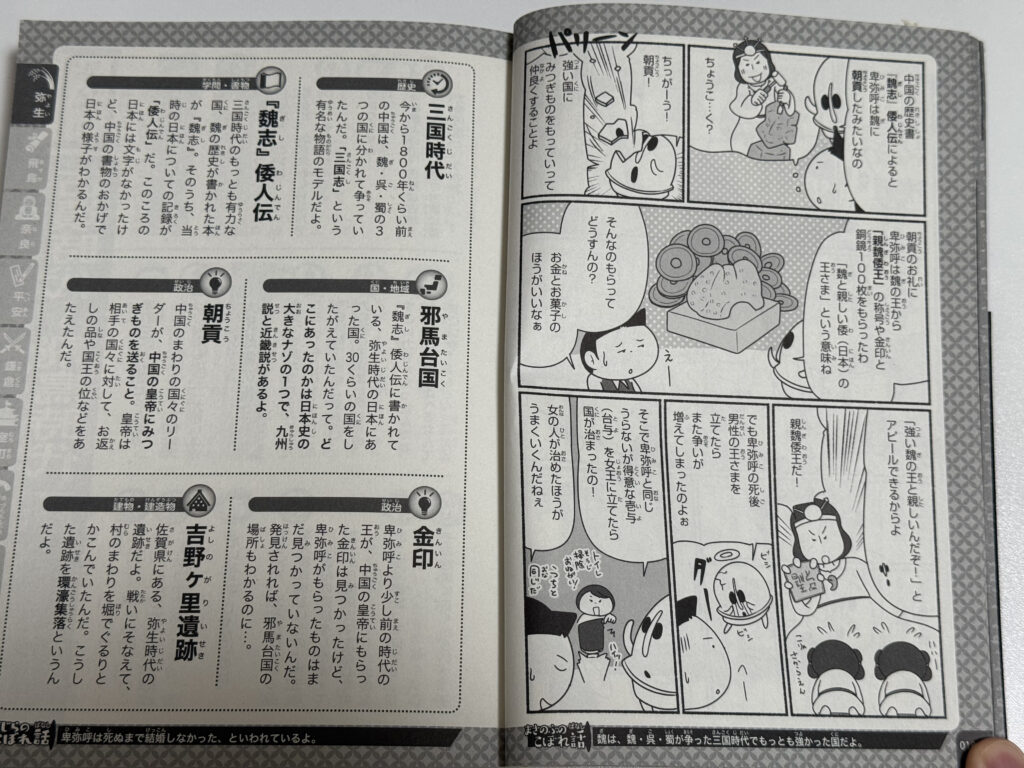 中国の歴史書
『魏志』倭人伝によると
卑弥呼は魏に
朝貢したみたいなの
ちょうこ〜く？
パリーン
ちっがーう！
朝貢！
強い国に
みつぎものをもっていって
仲良くすることよ
朝貢のお礼に
卑弥呼は魏の王から
「親魏倭王」の称号や金印と
銅鏡100枚をもらったわ
「魏と親しい倭（日本）の
王さま」という意味ね
そんなのもらって
どうすんの？
お金とお菓子の
ほうがいいなぁ
えー
「強い魏の王と親しいんだぞー！」と
アピールできるからよ
親魏倭王だ！
でも卑弥呼の死後
男性の王さまを
立てたら
また争いが
増えてしまったのよぉ
ピン
ピン
そこで卑弥呼と同じ
うらないが得意な壱与
（台与）を女王に立てたら
国が治まったの！
女の人が治めたほうが
うまくいくんだねぇ
まさのぶの
こぼれ話
魏は、魏・呉・蜀が争った三国時代でもっとも強かった国だよ。
弥生
飛鳥
奈良
平安
鎌倉
歴史
三国時代
今から1800年くらい前
の中国は、魏・呉・蜀の3
つの国に分かれて争ってい
たんだ。「三国志」という
有名な物語のモデルだよ。
学問・書物
『魏志』倭人伝
三国時代のもっとも有力な
国、魏の歴史が書かれた本
が『魏志』。そのうち、当
時の日本についての記録が
「倭人伝」だ。このころの
日本には文字がなかったけ
ど、中国の書物のおかげで
日本の様子がわかるんだ。
国・地域
邪馬台国
『魏志』倭人伝に書かれて
いる、弥生時代の日本にあ
った国。30くらいの国をし
たがえていたんだって。ど
こにあったのかは日本史の
大きなナゾの1つで、九州
説と近畿説があるよ。
政治
朝貢
中国のまわりの国々のリー
ダーが、中国の皇帝にみつ
ぎものを送ること。皇帝は
相手の国々に対して、お返
しの品や国王の位などをあ
たえたんだ。
政治
金印
卑弥呼より少し前の時代の
王が、中国の皇帝にもらっ
た金印は見つかったけど、
卑弥呼がもらったものはま
だ見つかっていないんだ。
発見されれば、邪馬台国の
場所もわかるのに…。
建物・建造物
吉野ヶ里遺跡
佐賀県にある、弥生時代の
遺跡だよ。戦いにそなえて、
村のまわりを堀でぐるりと
かこんでいたんだ。こうし
た遺跡を環濠集落というん
だよ。
こぼれ話
卑弥呼は死ぬまで結婚しなかった、といわれているよ。